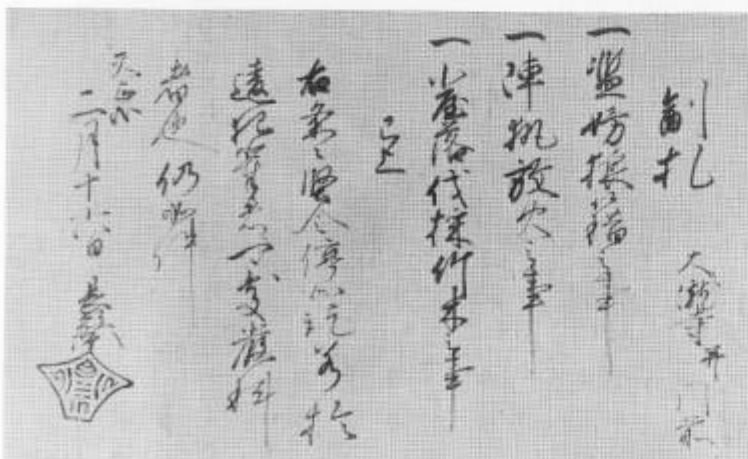 制札 大瀧寺并門前
一濫妨狼藉之事
一陣執放火之事
一小屋落伐採竹木之事
已上
右条々堅令停止訖若於
違犯輩者可処厳科
者也仍如件
天正
二月十六日